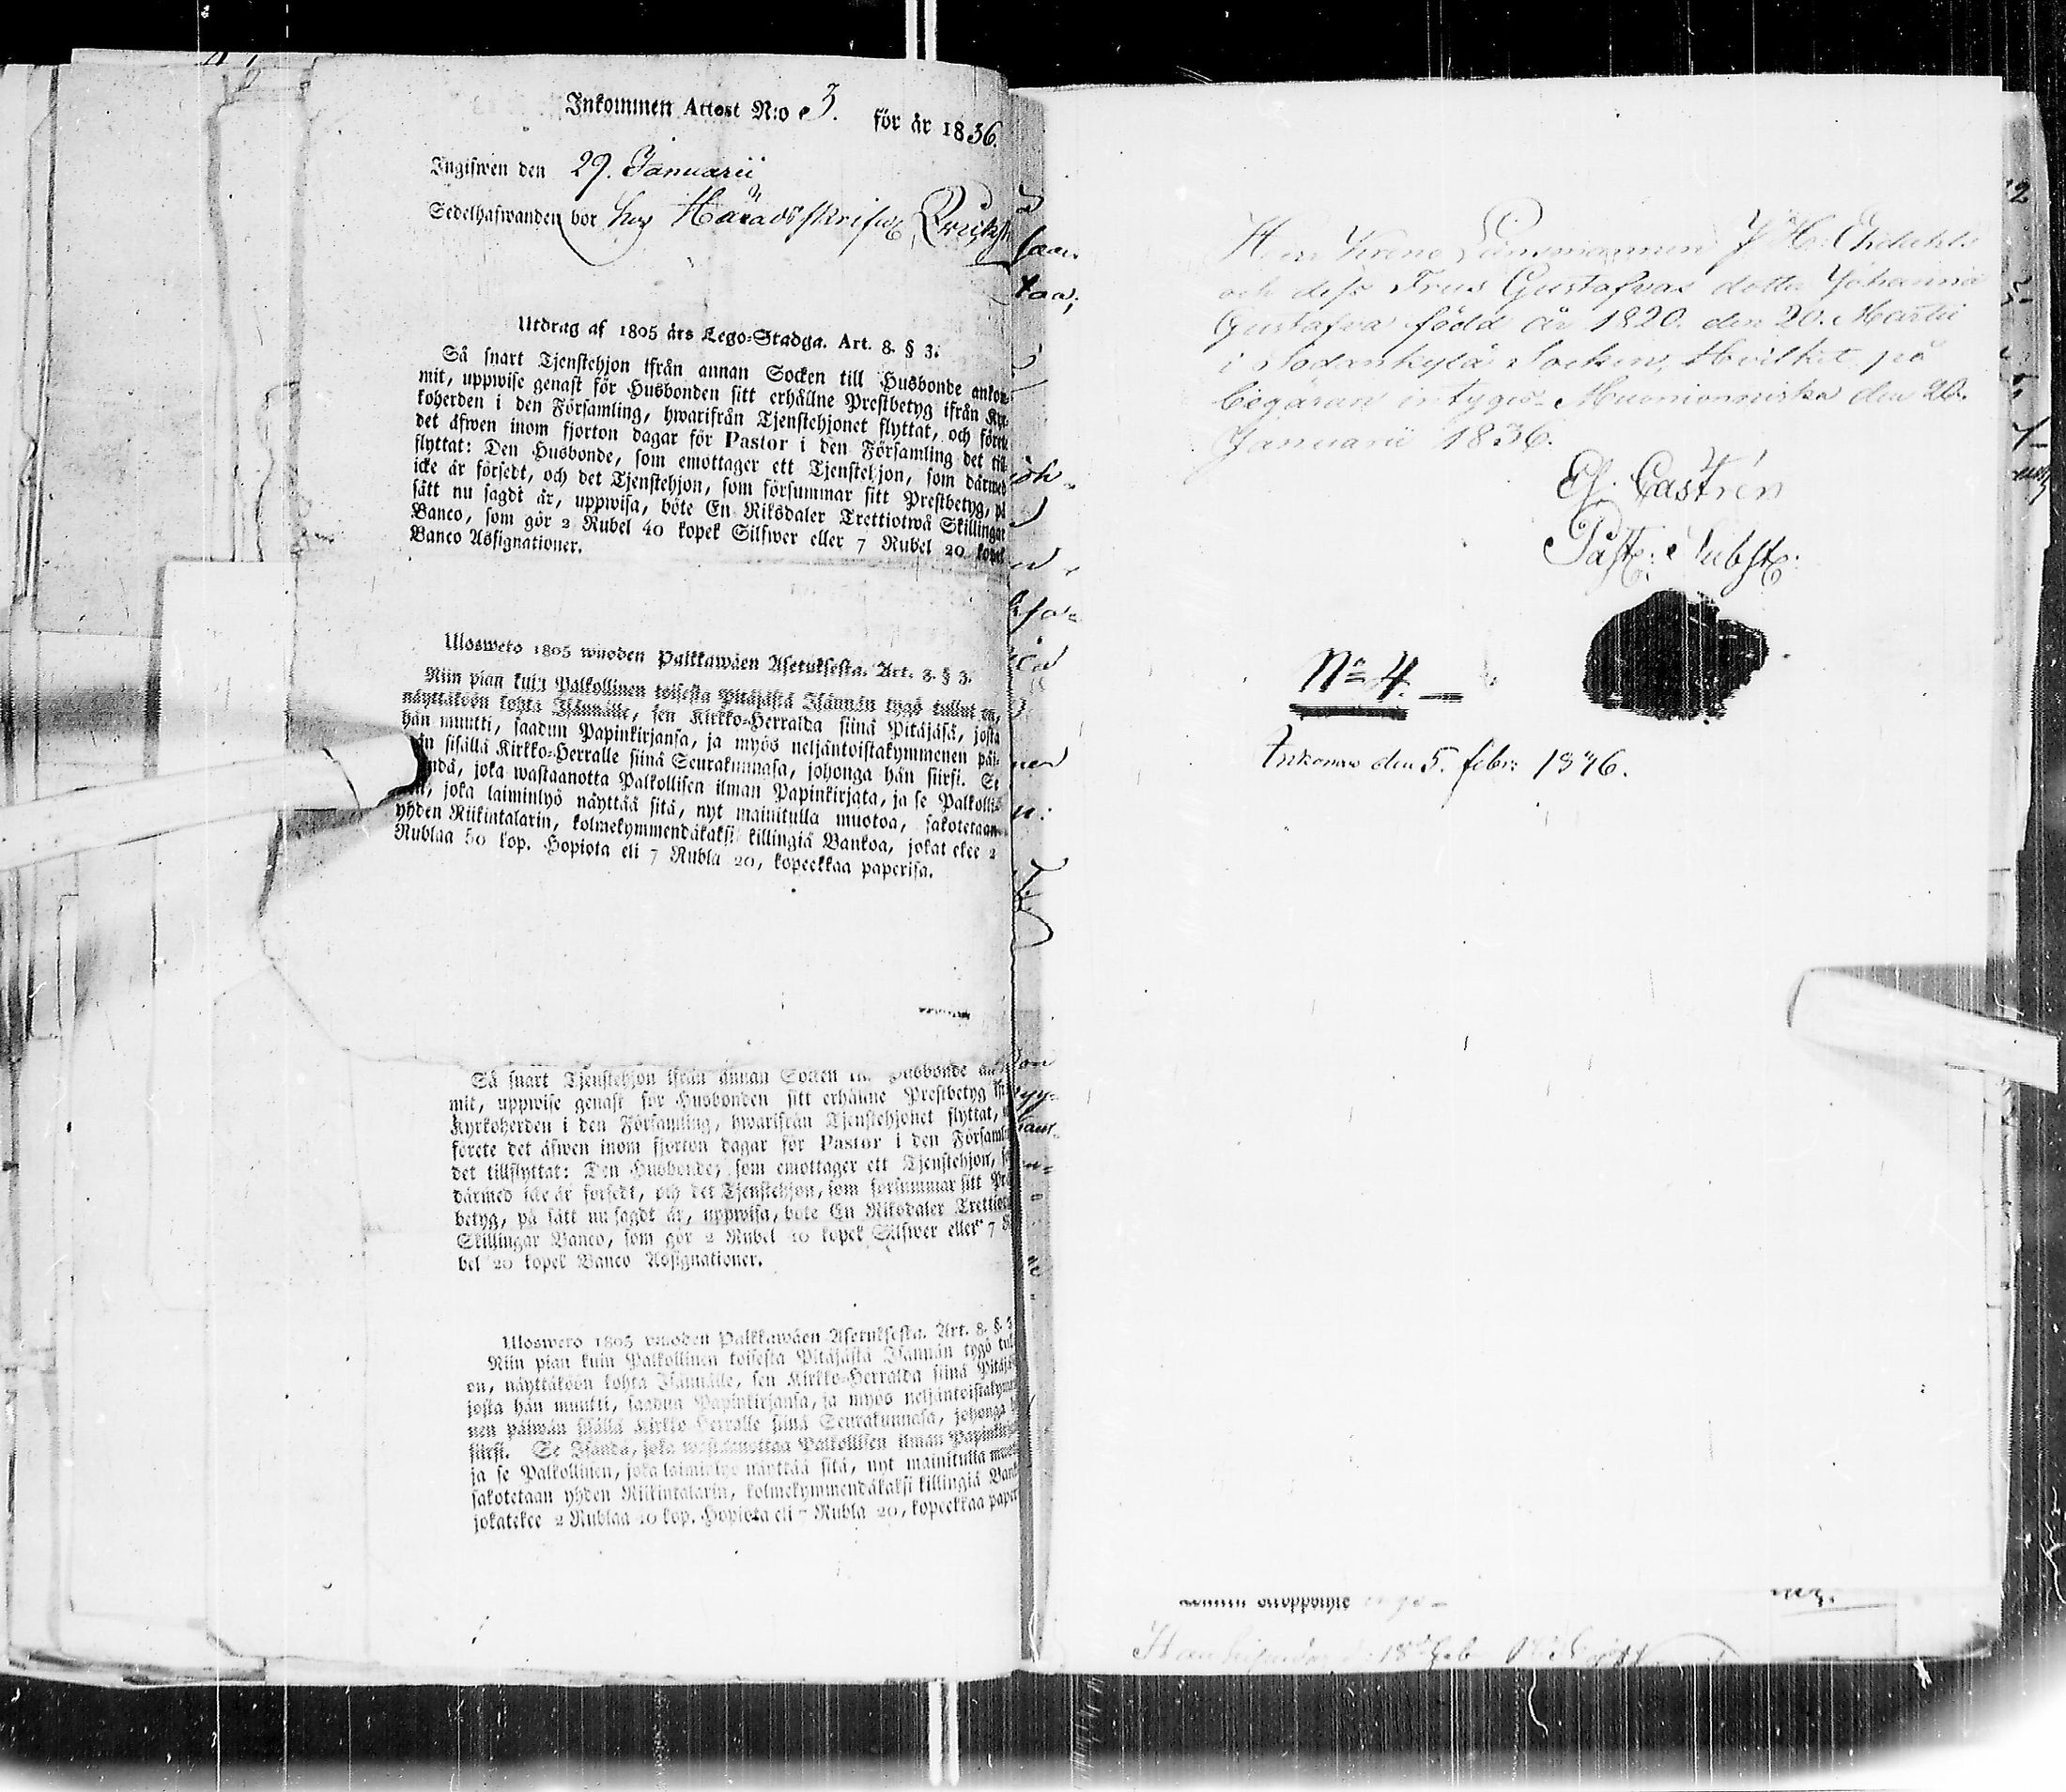 Inkommen Attest N:o 3. för år 1836.
Ingifwen den 29. Januarii
Sedelhafwanden bor hos Häradsskrifv
Utdrag af 1805 års Lego-Stadga. Art. 8. § 3.
Så snart Tjenstehjon ifrån annan Socken till Husbonde ankom-
mit, uppwise genast för Husbonden sitt erhållne Prestbetyg ifrån Kyr-
koherden i den Församling, hwarifrån Tjenstehjonet flyttat, och förete
det äfwen inom fjorton dagar för Pastor i den Församling det till-
flyttat: Den Husbonde, som emottager ett Tjenstehjon, som därmed
icke är försedt, och det Tjenstehjon, som försummar sitt Prestbetyg, på
sätt nu sagdt är, uppwisa, böte En Riksdaler Trettiotwå Skillingar
Banco, som gör 2 Rubel 40 kopek Silfwer eller 7 Rubel 20 kopek
Banco Assignationer.
Ulosweto 1805 wuoden Palkkawäen Asetuksesta. Art. 8. § 3.
Niin pian kuin Palkollinen toisesta Pitäjästä Isännän tygö tullut on,
näyttäköön kohta Isännälle, sen Kirkko-Herralda siinä Pitäjäsä, josta
hän muutti, saadun Papinkirjansa, ja myös neljäntoistakymmenen päi-
än sisällä Kirkko-Herralle siinä Seurakunnasa, johonga hän siirsi. Se
ndä, joka wastaanotta Palkollisen ilman Papinkirjata, ja se Palkolli-
, joka laiminlyö näyttää sitä, nyt mainitulla muotoa, sakotetaan
yhden Riikintalarin, kolmekymmendäkaksi killingiä Bankoa, jokat ekee 2
Rublaa 50 kop. Hopiota eli 7 Rubla 20, kopeekkaa paperisa.
Så snart Tjenstehjon ifrån annan Socken Husbonde an
mit, uppwise genast för Husbonden sitt erhållne Prestbetyg
Kyrkoherden i den Församling, hwarifrån Tjenstehjonet flyttat,
förete det äfwen inom fjorton dagar för Pastor i den Församl
det tillflyttat: Den Husbonde, som emottager ett Tjenstehjon,
därmed icke är försedt, och det Tjenstehjon, som försummar sitt Pre
betyg, på sätt nu sagdt är, uppwisa, böte En Riksdaler Trettiot
Skillingar Banco, som gör 2 Rubel 40 kopek Silfwer eller 7 R
bel 20 kopek Banco Assignationer.
Uloswero 1805 wuoden Palkkawäen Asetuksesta. Art. 8. § 3
Niin pian kuin Palkollinen toisesta Pitäjästä Isännän tygö tul
on, näyttäköön kohta Isännälle, sen Kirkko-Herralda siinä Pitäjä
josta hän muutti, saadun Papinkirjansa, ja myös neljäntoistakym
nen päiwän sisällä Kirkko-Herralle siinä Seurakunnasa, johonga
siirsi. Se Isändä, joka wastaanottaa Palkollisen ilman Papinkirj
ja se Palkollinen, joka laiminlyö näyttää sitä, nyt mainitulla muo
sakotetaan yhden Riikintalarin, kolmekymmendäkaksi killingiä Ban
jokatekee 2 Rublaa 40 kop. Hopiota eli 7 Rubla 20, kopeekkaa paper
Herr Krono Länsmannen J H: Ehdahls
och dess Frus Gustafvas dotter Johanna
Gustafva född år 1820. den 20. Martii
i Sodankylä Socken; Hvilket på
begäran intygas. Muonionniska den 26.
Januarii 1836.
Ef. Castrén
Past: Subst:
N:o 4.
Inkommen den 5. febr: 1836.